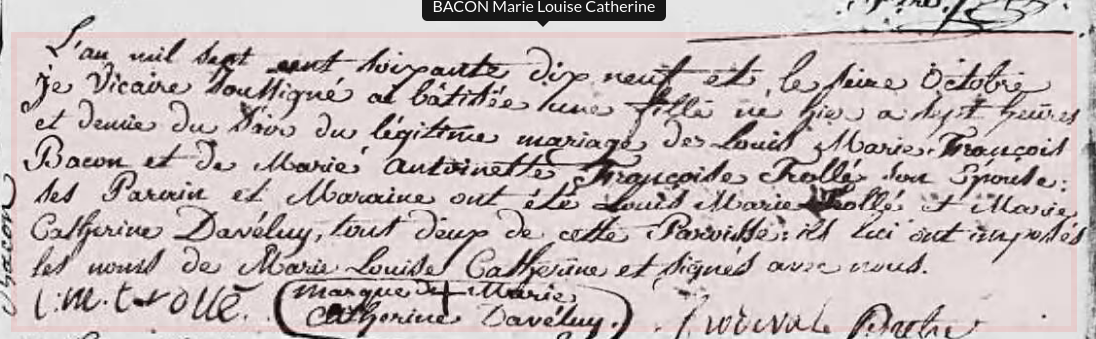 BACON Marie Louise Catherine
L'an mil sept cent soixante dix neuf et, le seize Octobre
je Vicaire soussigné ai bâtisée une fille né hier a sept heures
et demie du soir du légitime mariage des Louis Marie François
Bacon et de Marie Antoinette Françoise Trollé son Epouse:
ses Parain et Maraine ont été Louis Marie Trollé et Marie
Catherine Davéluy, tout deux de cette Paroisse: ils lui ont imposés
les noms de Marie Louise Catherine et signés avec nous.
marque de + Marie
L.M. trollé. Catherine Davéluy.
Bacon